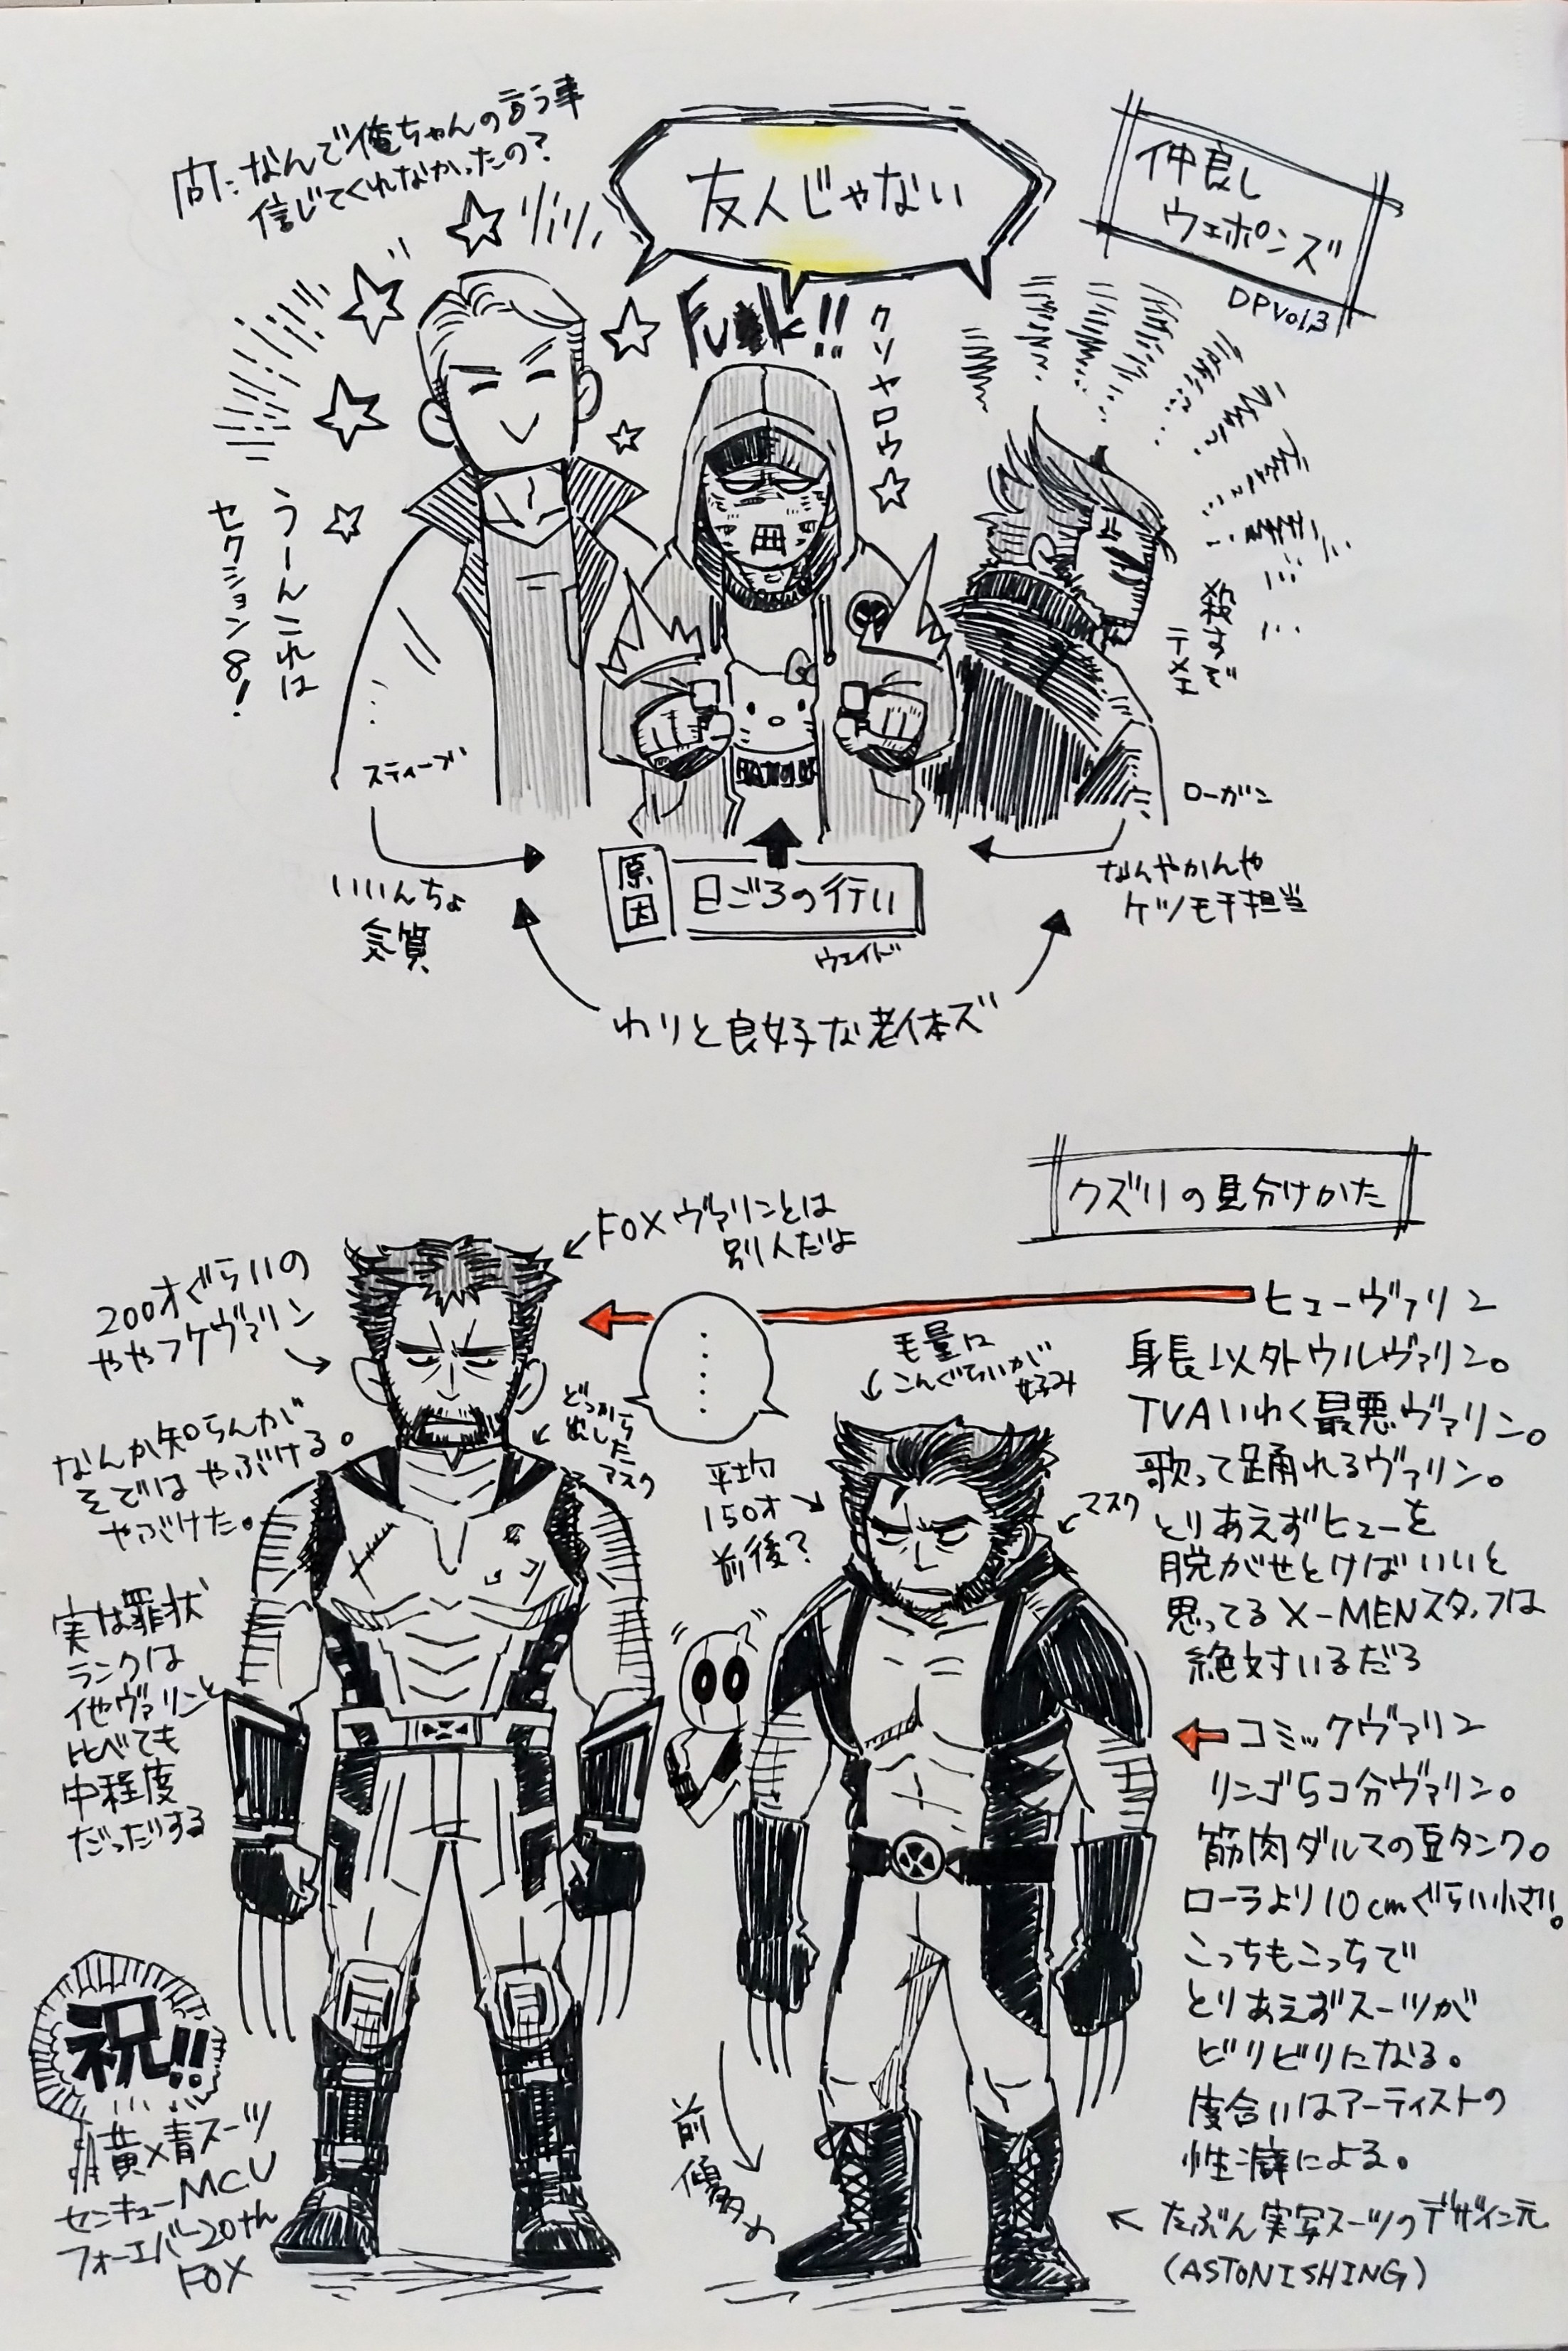 問：なんで俺ちゃんの言う事
信じてくれなかったの？
友人じゃない
仲良し
ウェポンズ
DPVol.3
Fu●k!!
クソヤロウ☆
うーんこれは
セクション8！
殺すぞ
テメェ
スティーブ
ローガン
いいんちょ
気質
原因
日ごろの行い
ウェイド
なんやかんや
ケツモチ担当
わりと良好な老体ズ
クズリの見分けかた
FOXヴァリンとは
別人だよ
200才ぐらいの
ややフケヴァリン
なんか知らんが
そではやぶける。
やぶけた。
どっから
出した
マスク
実は罪状
ランクは
他ヴァリンと
比べても
中程度
だったりする
……
毛量は
こんぐらいが
好み
平均
150才
前後？
マスク
ヒューヴァリン
身長以外ウルヴァリン。
TVAいわく最悪ヴァリン。
歌って踊れるヴァリン。
とりあえずヒューを
脱がせとけばいいと
思ってるX-MENスタッフは
絶対いるだろ
コミックヴァリン
リンゴ5コ分ヴァリン。
筋肉ダルマの豆タンク。
ローラより10cmぐらい小さい。
こっちもこっちで
とりあえずスーツが
ビリビリになる。
度合いはアーティストの
性癖による。
たぶん実写スーツのデザイン元
(ASTONISHING)
前傾多め
祝!!
黄×青スーツ
センキューMCU
フォーエバー20th
FOX